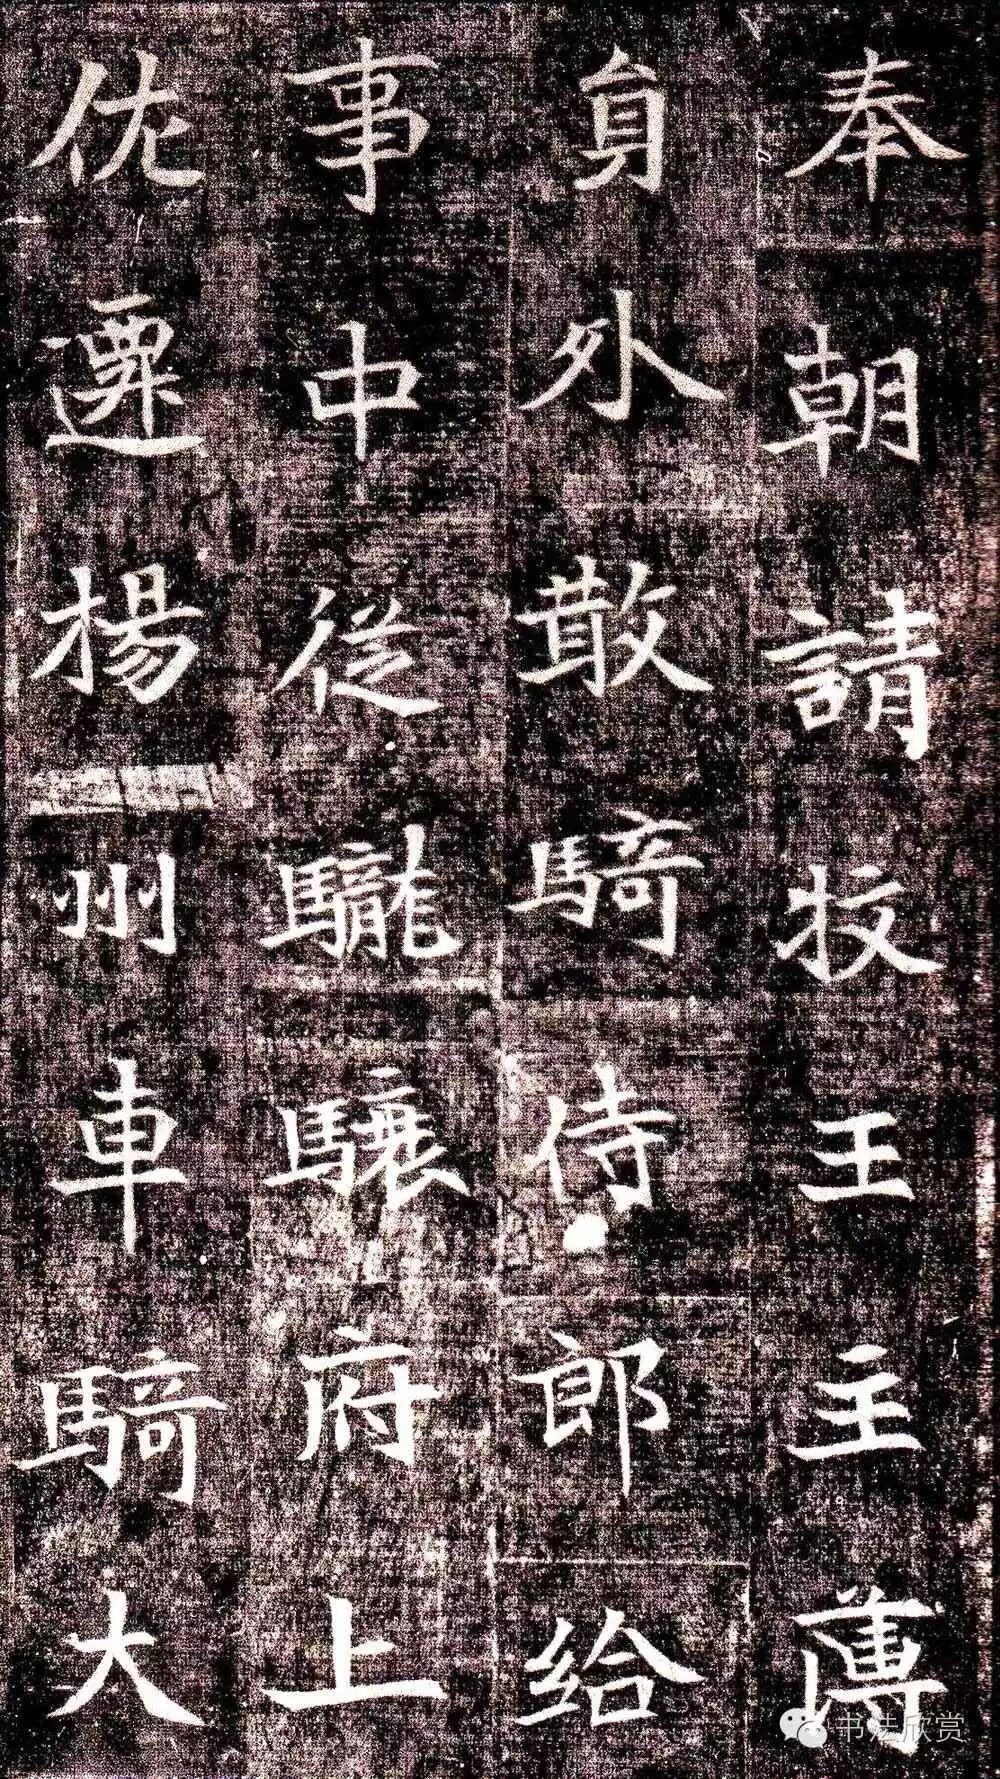 奉朝請牧王主薄
負外散騎侍郎給
事中從驪驤府上
佐遷揚州車騎大
书法欣赏